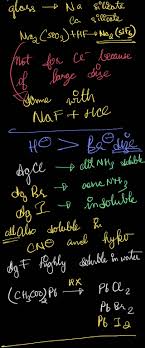 glass → Na silicate
Ca silicate
Na2(SiO3) + HF → Na2(SiF6)
Not for Cl⁻ because
of large size
Same with
NaF + HCl
H⊖ > Ba⊖ size
AgCl → dil NH3 soluble
AgBr → conc NH3
AgI → insoluble
all also soluble in
CN⊖ and hypo
AgF Highly soluble in water
(CH3COO)2Pb KX → PbCl2
PbBr2
PbI2